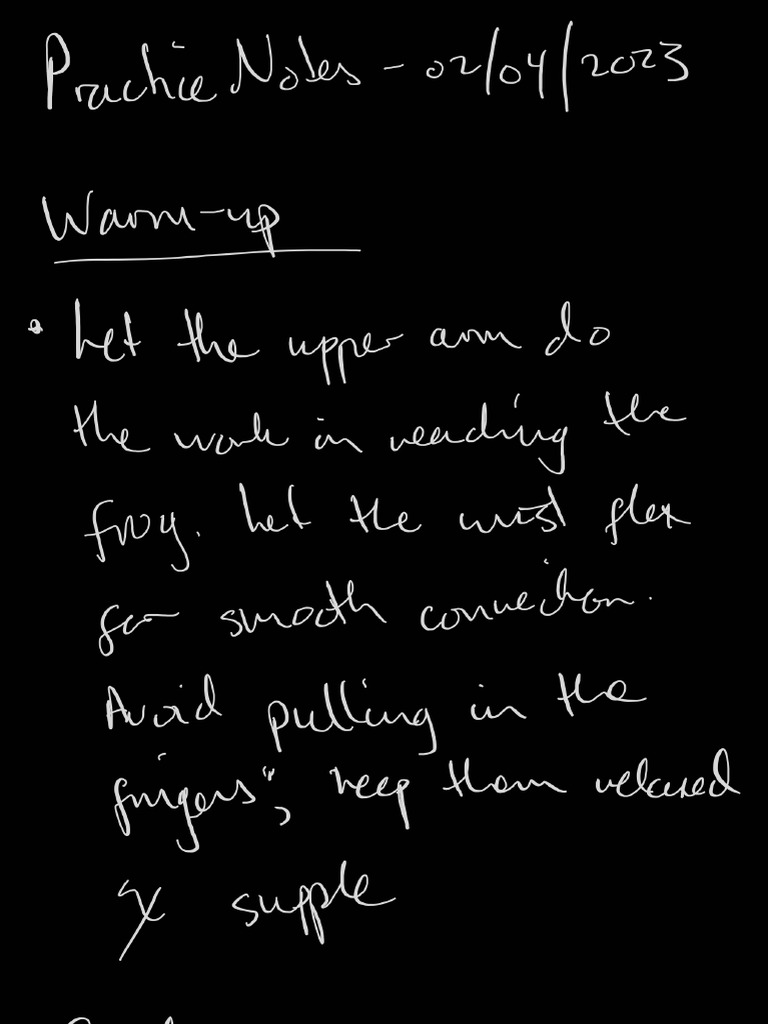 Practice Notes - 02/04/2023
Warm-up
• Let the upper arm do
the work in reaching the
frog. Let the wrist flex
for smooth connection.
Avoid pulling in the
fingers", keep them relaxed
& supple